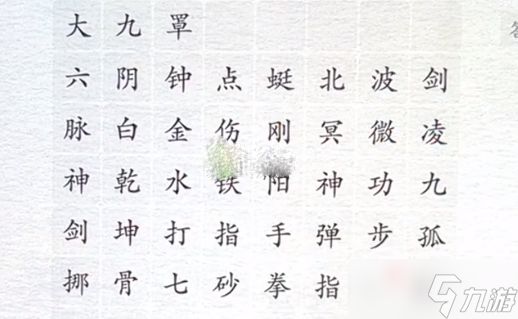 大九罩
六阴钟点蜓北波剑
脉白金伤刚冥微凌
神乾水铁阳神功九
剑坤打指手弹步孤
挪骨七砂拳指
九游